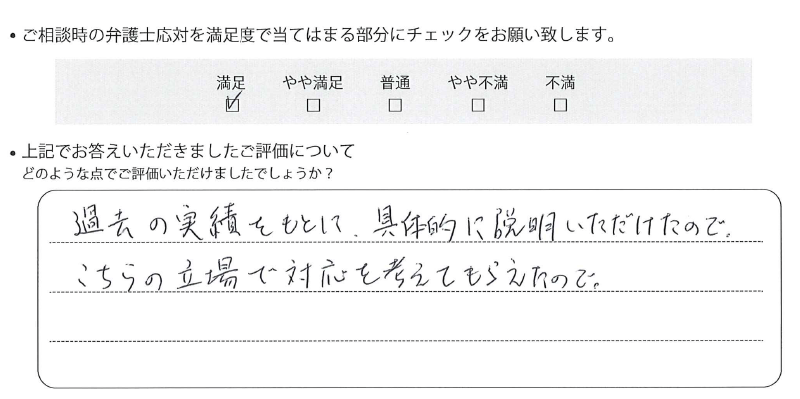 • ご相談時の弁護士応対を満足度で当てはまる部分にチェックをお願い致します。
満足 やや満足 普通 やや不満 不満
☑ ☐ ☐ ☐ ☐
• 上記でお答えいただきましたご評価について
どのような点でご評価いただけましたでしょうか？
過去の実績をもとに、具体的に説明いただけたので。
こちらの立場で対応を考えてもらえたので。